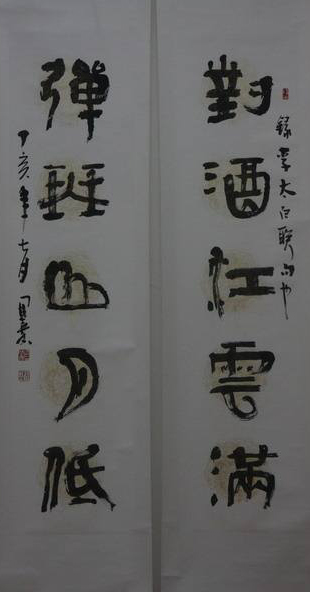 對酒江雲滿
錄李太白聯句也
弹琴山月低
丁亥年七月